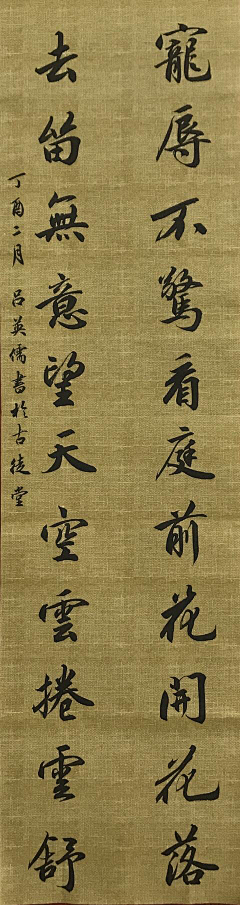 寵辱不驚看庭前花開花落
去留無意望天空雲捲雲舒
丁酉二月 呂英儒書於古徒堂